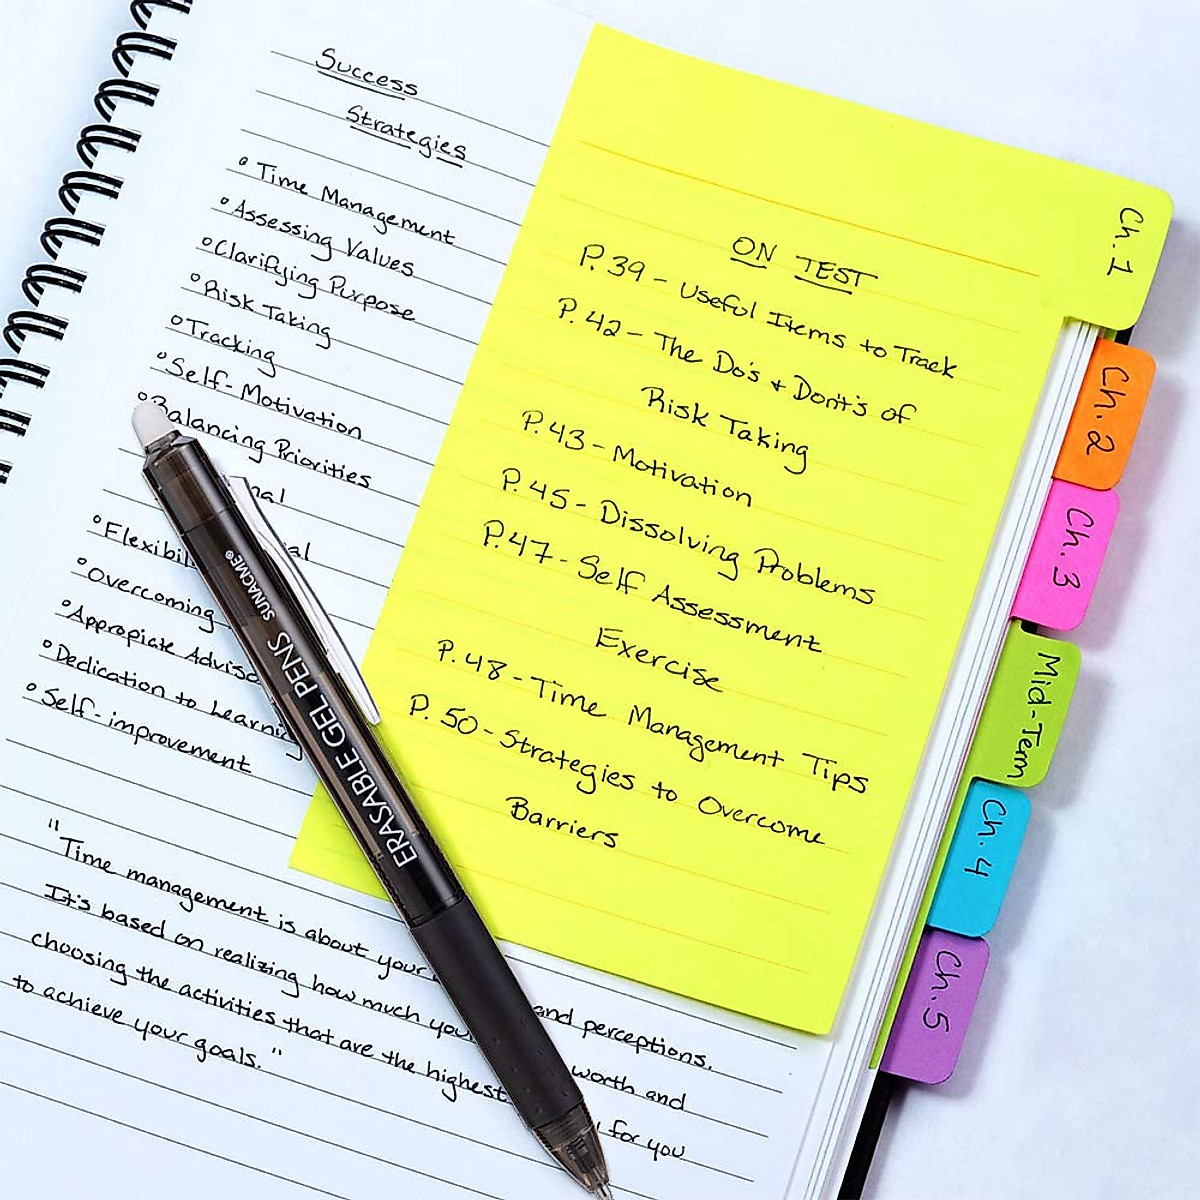 Success
Strategies
° Time Management
° Assessing Values
° Clarifying Purpose
° Risk Taking
° Tracking
° Self-Motivation
° Balancing Priorities
° Overcoming
° Appropiate
° Dedication to Learning
° Self-improvement
"Time management is about your and perceptions.
It's based on realizing how much your worth and
choosing the activities that are the highest for you
to achieve your goals."
ON TEST
P. 39 - Useful Items to Track
P. 42 - The Do's + Dont's of
Risk Taking
P. 43 - Motivation
P. 45 - Dissolving Problems
P. 47 - Self Assessment
Exercise
P. 48 - Time Management Tips
P. 50 - Strategies to Overcome
Barriers
Ch. 1
Ch. 2
Ch. 3
Mid-Term
Ch. 4
Ch. 5
ERASABLE GEL PENS SUNACME®